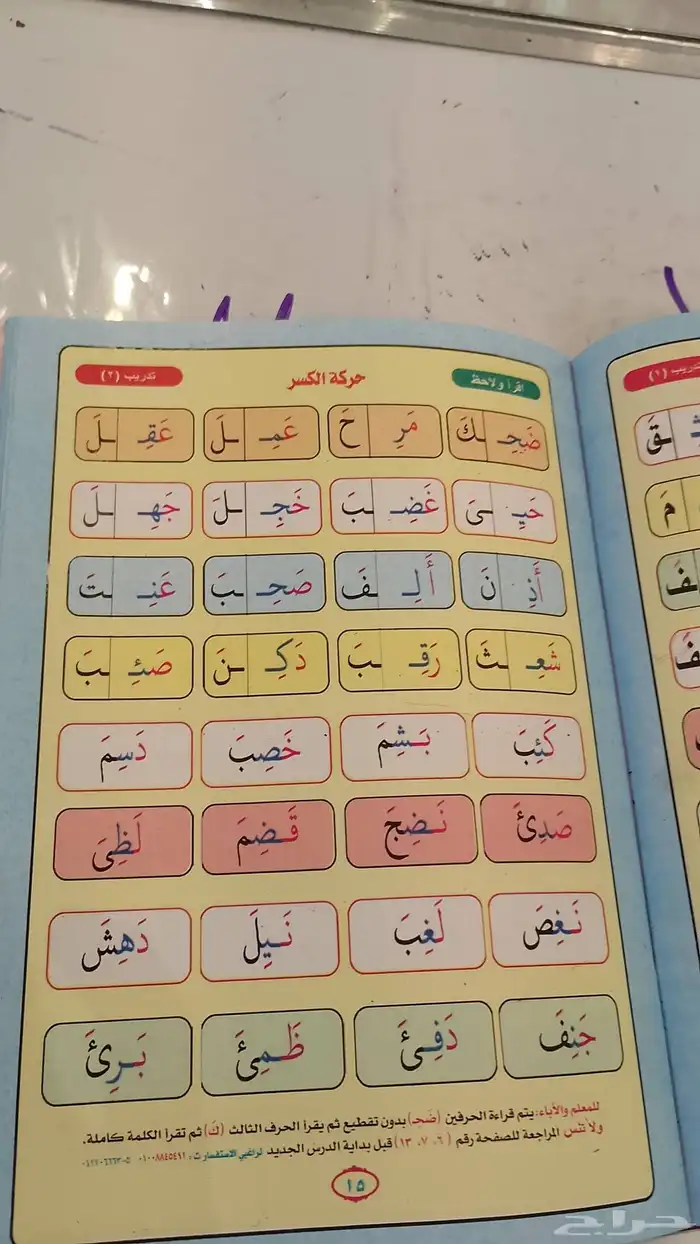 اقرأ ولاحظ حركة الكسر تدريب (٢)
ضَحِـ ـكَ مَرِ حَ عَمِـ ـلَ عَقِـ ـلَ
حَيِـ ـىَ غَضِـ ـبَ خَجِـ ـلَ جَهِـ ـلَ
أَذِ نَ أَلِـ ـفَ صَحِـ ـبَ عَنِـ ـتَ
شَعِـ ـثَ رَقِـ ـبَ دَكِـ ـنَ صَئِـ ـبَ
كَئِبَ بَـشِمَ خَصِبَ دَسِمَ
صَدِئَ نَـضِجَ قَـضِمَ لَظِىَ
نَـغِصَ لَغِبَ نَـيِلَ دَهِشَ
جَنِفَ دَفِـئَ ظَـمِئَ بَـرِئَ
للمعلم والآباء: يتم قراءة الحرفين (ضَحِـ) بدون تقطيع ثم يقرأ الحرف الثالث (كَ) ثم تقرأ الكلمة كاملة.
ولا تنس المراجعة للصفحة رقم (٦، ٧، ١٣) قبل بداية الدرس الجديد لراغبي الاستفسار ت:
١٥
تدريب (١)
ـقَ
مَ
ـفَ
حراج